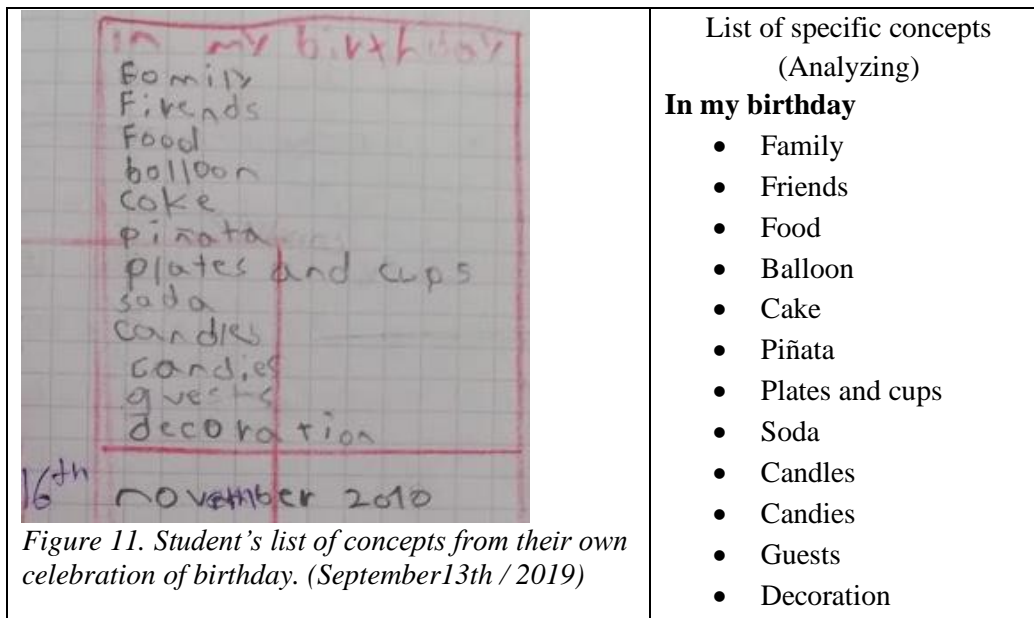 in my birthday
Family
Firends
Food
balloon
cake
piñata
plates and cups
soda
candles
candies
guests
decoration
16th november 2010
Figure 11. Student’s list of concepts from their own
celebration of birthday. (September13th / 2019)
List of specific concepts
(Analyzing)
In my birthday
• Family
• Friends
• Food
• Balloon
• Cake
• Piñata
• Plates and cups
• Soda
• Candles
• Candies
• Guests
• Decoration